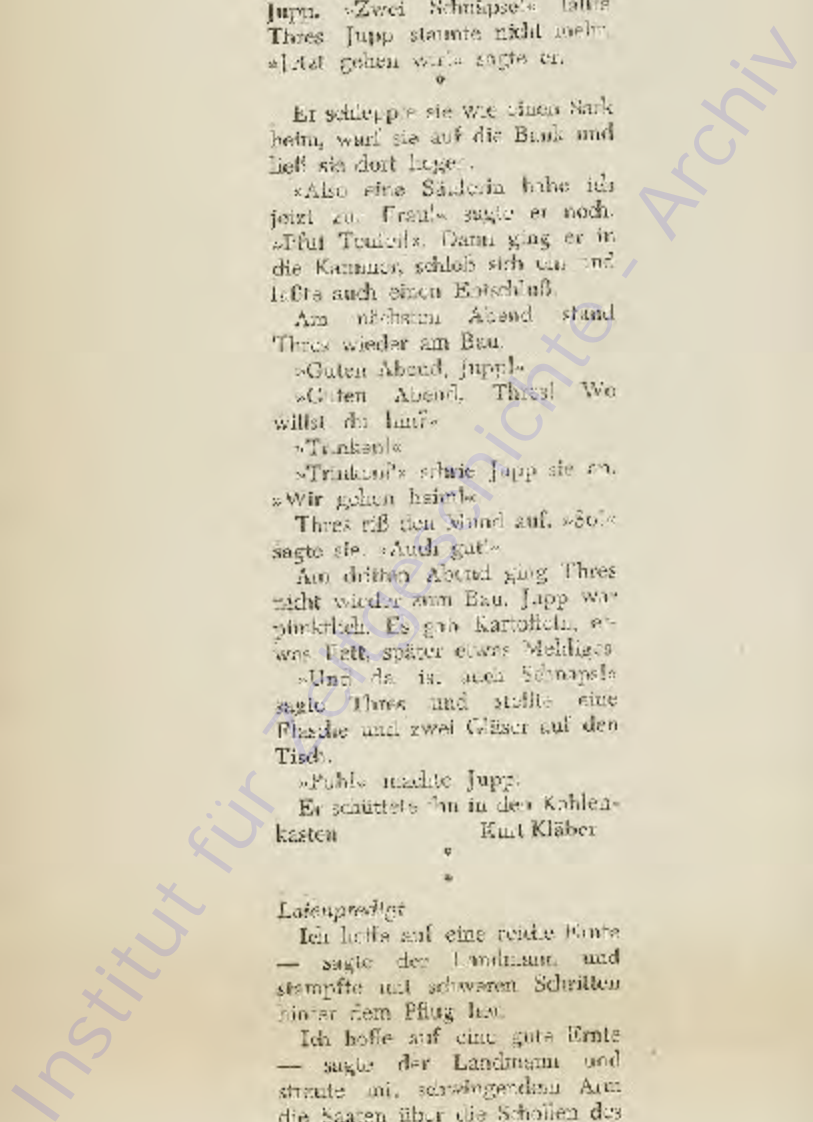 Jupp. »Zwei Schnäpse!« lallte
Thres. Jupp staunte nicht mehr.
»Jetzt gehen wir!« sagte er.
*
Er schleppte sie wie einen Sack
heim, warf sie auf die Bank und
ließ sie dort liegen.
»Also eine Säuferin habe ich
jetzt zur Frau!« sagte er noch.
»Pfui Teufel!«. Dann ging er in
die Kammer, schloß sich ein und
faßte auch einen Entschluß.
Am nächsten Abend stand
Thres wieder am Bau.
»Guten Abend, Jupp!«
»Guten Abend, Thres! Wo
willst du hin?«
»Trinken!«
»Trinken!« schrie Jupp sie an.
»Wir gehen heim!«
Thres riß den Mund auf. »So!«
sagte sie. »Auch gut!«
Am dritten Abend ging Thres
nicht wieder zum Bau. Jupp war
pünktlich. Es gab Kartoffeln, et-
was Fett, später etwas Mehliges.
»Und da ist auch Schnaps!«
sagte Thres und stellte eine
Flasche und zwei Gläser auf den
Tisch.
»Puh!« machte Jupp.
Er schüttete ihn in den Kohlen-
kasten Kurt Kläber
*
*
Laienpredigt
Ich hoffe auf eine reiche Ernte
— sagte der Landmann und
stampfte mit schweren Schritten
hinter dem Pflug her.
Ich hoffe auf eine gute Ernte
— sagte der Landmann und
streute mit schwingendem Arm
die Saaten über die Schollen des
Institut für Zeitgeschichte - Archiv